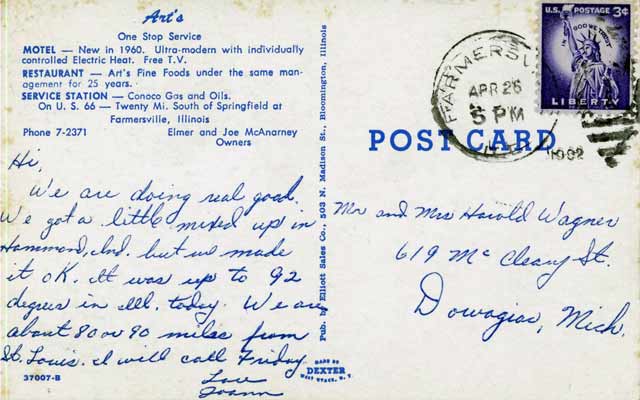 Art's
One Stop Service
MOTEL — New in 1960. Ultra-modern with individually
controlled Electric Heat. Free T.V.
RESTAURANT — Art's Fine Foods under the same man-
agement for 25 years.
SERVICE STATION — Conoco Gas and Oils.
On U. S. 66 — Twenty Mi. South of Springfield at
Farmersville, Illinois
Phone 7-2371 Elmer and Joe McAnarney
Owners
Hi,
We are doing real good.
We got a little mixed up in
Hammond, Ind. but we made
it OK. It was up to 92
degrees in Ill. today. We are
about 80 or 90 miles from
St. Louis. I will call Friday.
Love
Joann
37007-B
Pub. by Elliott Sales Co., 503 N. Madison St., Bloomington, Illinois
MADE BY
DEXTER
WEST NYACK, N. Y.
POST CARD
FARMERSV
APR 26
5 PM
ILL
U.S. POSTAGE 3¢
IN GOD WE TRUST
LIBERTY
Mr and Mrs Harold Wagner
619 McCleary St.
Dowagiac, Mich.